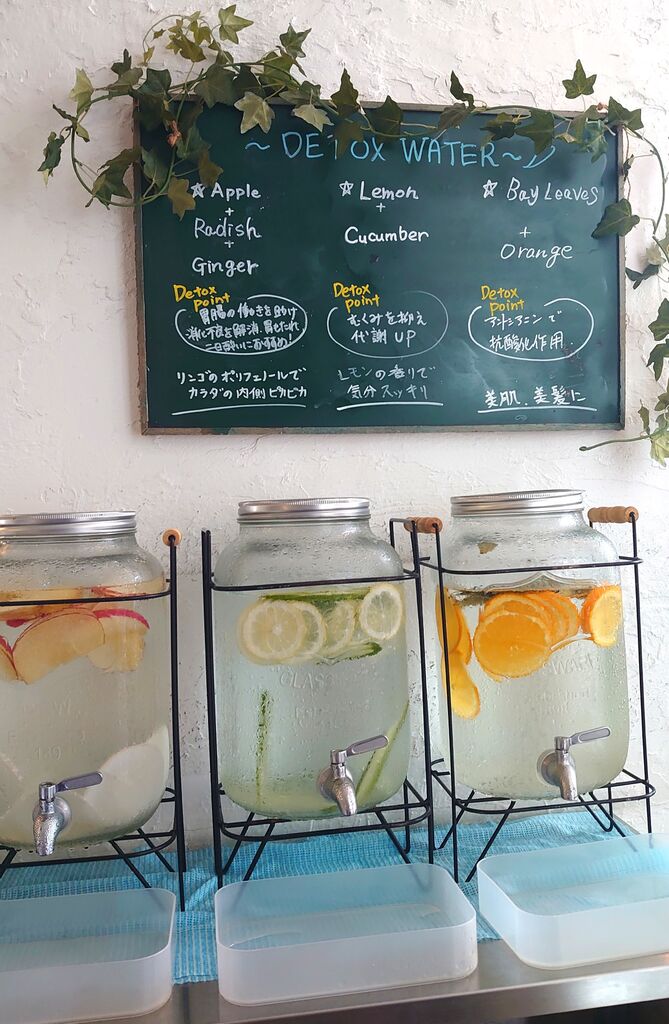 ~ DETOX WATER ~
☆ Apple
+
Radish
+
Ginger
Detox
point
胃腸の働きを助け
消化不良を解消、胃もたれ
二日酔いにおすすめ!
リンゴのポリフェノールで
カラダの内側ピカピカ
☆ Lemon
+
Cucumber
Detox
point
むくみを抑え
代謝UP
レモンの香りで
気分スッキリ
☆ Bay Leaves
+
Orange
Detox
point
アントシアニンで
抗酸化作用
美肌、美髪に
GLASS